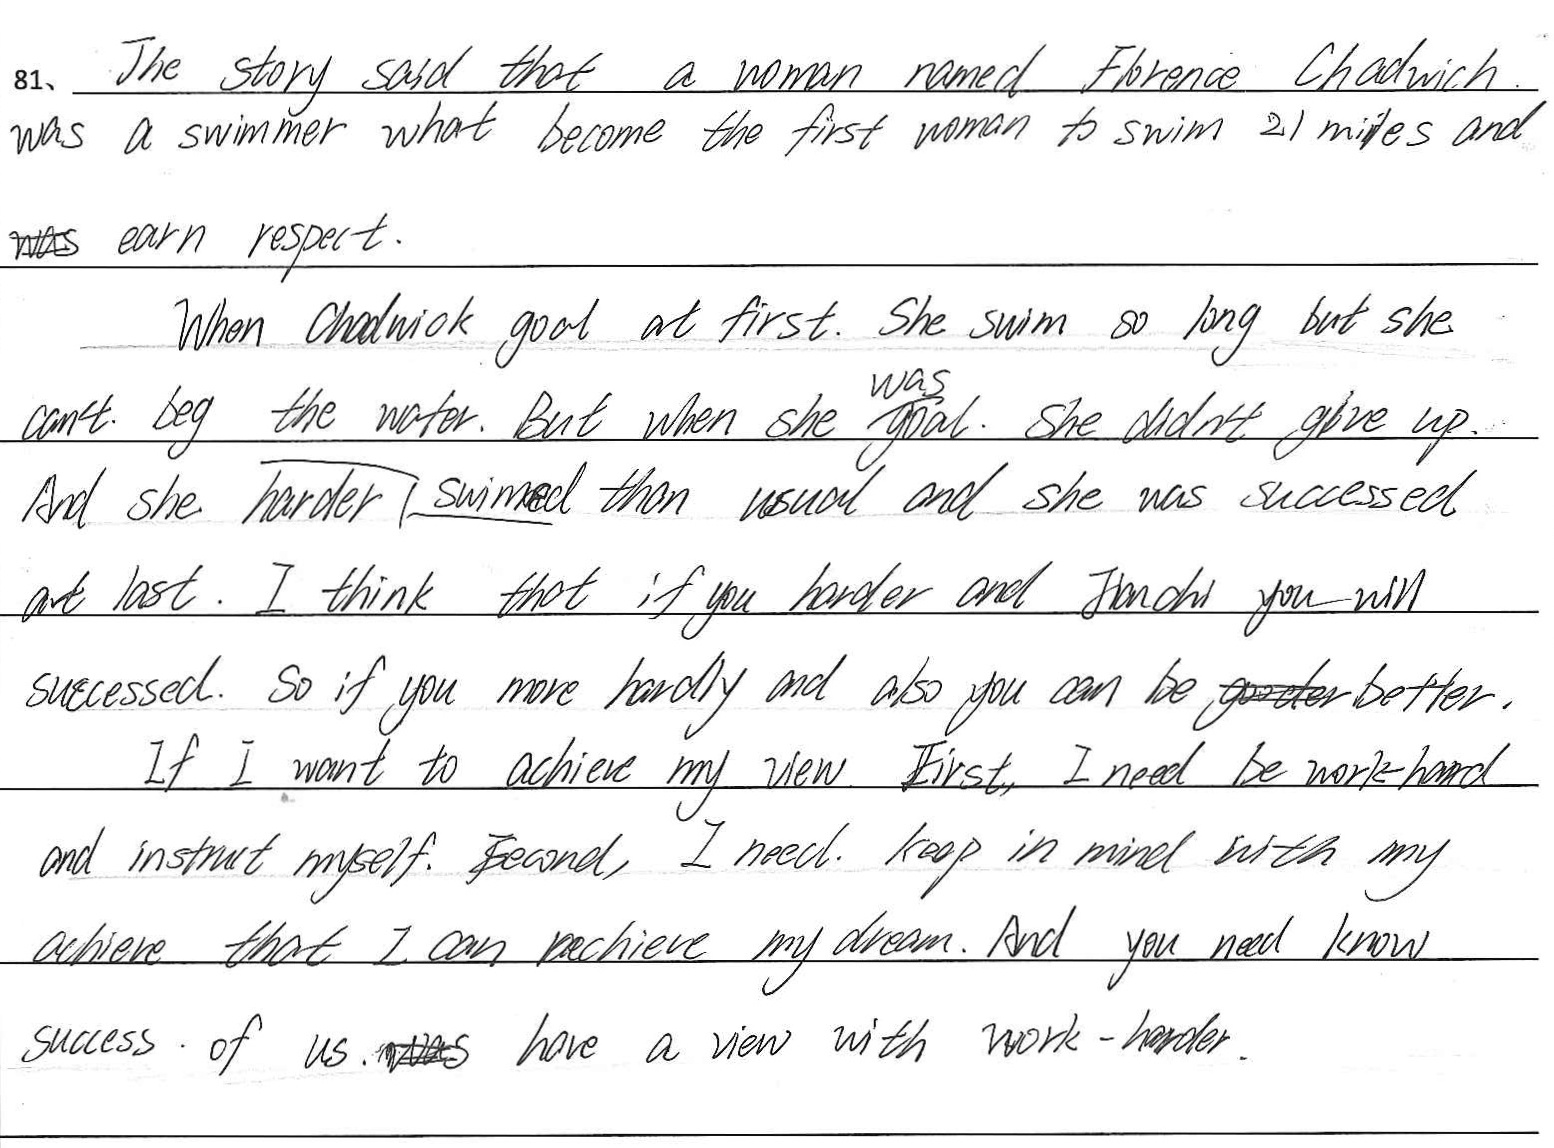 81、 The story said that a woman named Florence Chadwich
was a swimmer what become the first woman to swim 21 miles and
earn respect.
When Chadwick goal at first. She swim so long but she
can't. beg the water. But when she was goal. She didn't give up.
And she harder swimed than usual and she was successed
at last. I think that if you harder and Jianchi you will
successed. So if you more hardly and also you can be better.
If I want to achieve my view. First, I need be work-hard
and instruct myself. Second, I need. keep in mind with my
achieve that I can achieve my dream. And you need know
success. of us. have a view with work-harder.